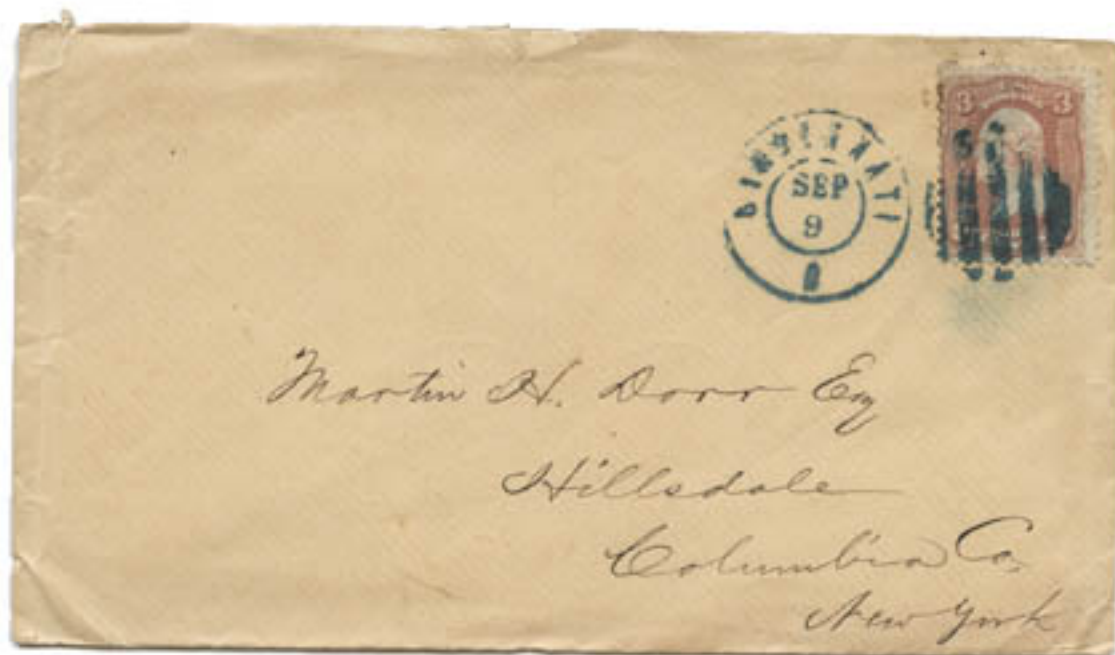 CINCINNATI
SEP
9
O
3 3
Martin H. Dorr Esq
Hillsdale
Columbia Co.
New York